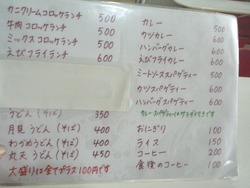 カニクリームコロッケランチ 500
牛肉コロッケランチ 500
ミックスコロッケランチ 500
えびフライランチ 600
うどん(そば) 350
月見うどん(そば) 400
わかめうどん(そば) 400
丸天うどん(そば) 450
大盛りは全てプラス100円です
カレー 500
カツカレー 600
ハンバーグカレー 600
えびフライカレー 600
ミートソーススパゲティー 500
カツスパゲティー 600
ハンバーグスパゲティー 600
おにぎり 100
ライス 150
コーヒー 200
食後のコーヒー 100